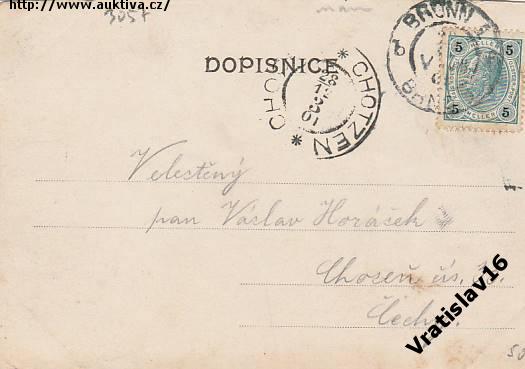 http://www.auktiva.cz/
3057
BRÜNN
5 HELLER 5
5 HELLER 5
DOPISNICE
* CHOTZEN *
CHO
28 12 01
Velectěný
pan Václav Horáček
Choceň
Čechy
Vratislav16
50